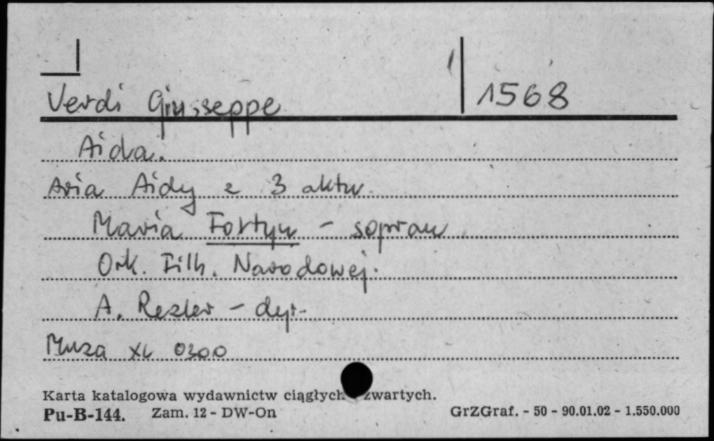 Verdi Giusseppe 1568
Aida.
Aria Aidy z 3 aktu.
Maria Fołtyn - sopran.
Ork. Filh. Narodowej.
A. Rezler - dyr.
Muza XL 0300
Karta katalogowa wydawnictw ciągłych zwartych.
Pu-B-144. Zam. 12 - DW-On GrZGraf. - 50 - 90.01.02 - 1.550.000